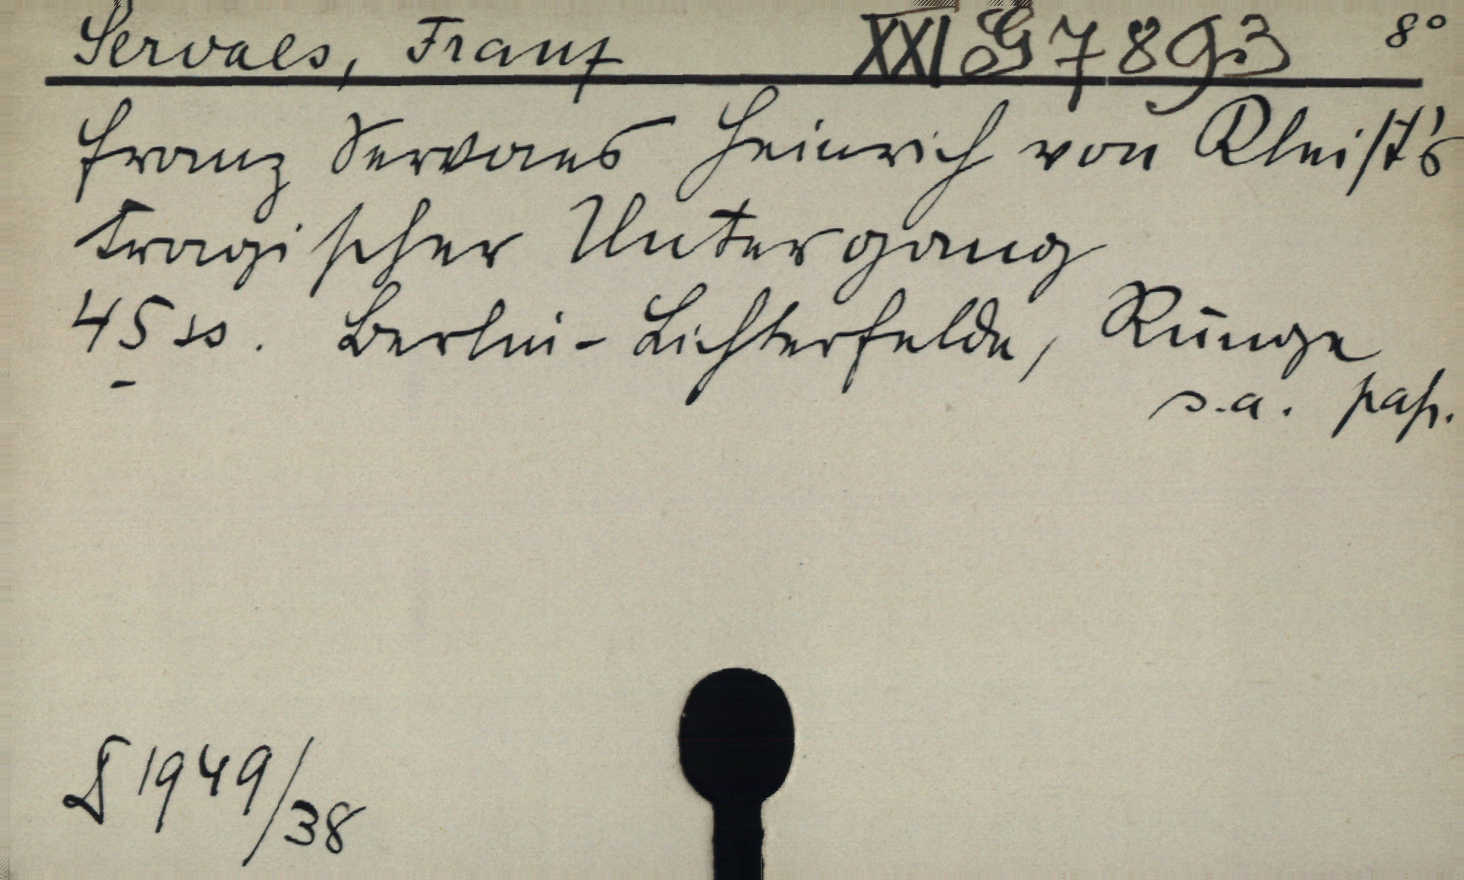 Servaes, Franz XXI G 7893 8°
Franz Servaes Heinrich von Kleist's
tragischer Untergang
45 ss. Berlin-Lichterfelde, Runge
s.a. pap.
1949/38